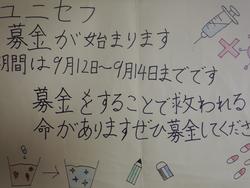 ユニセフ
募金が始まります
期間は9月12日〜9月14日までです
募金をすることで救われる
命がありますぜひ募金してくださ